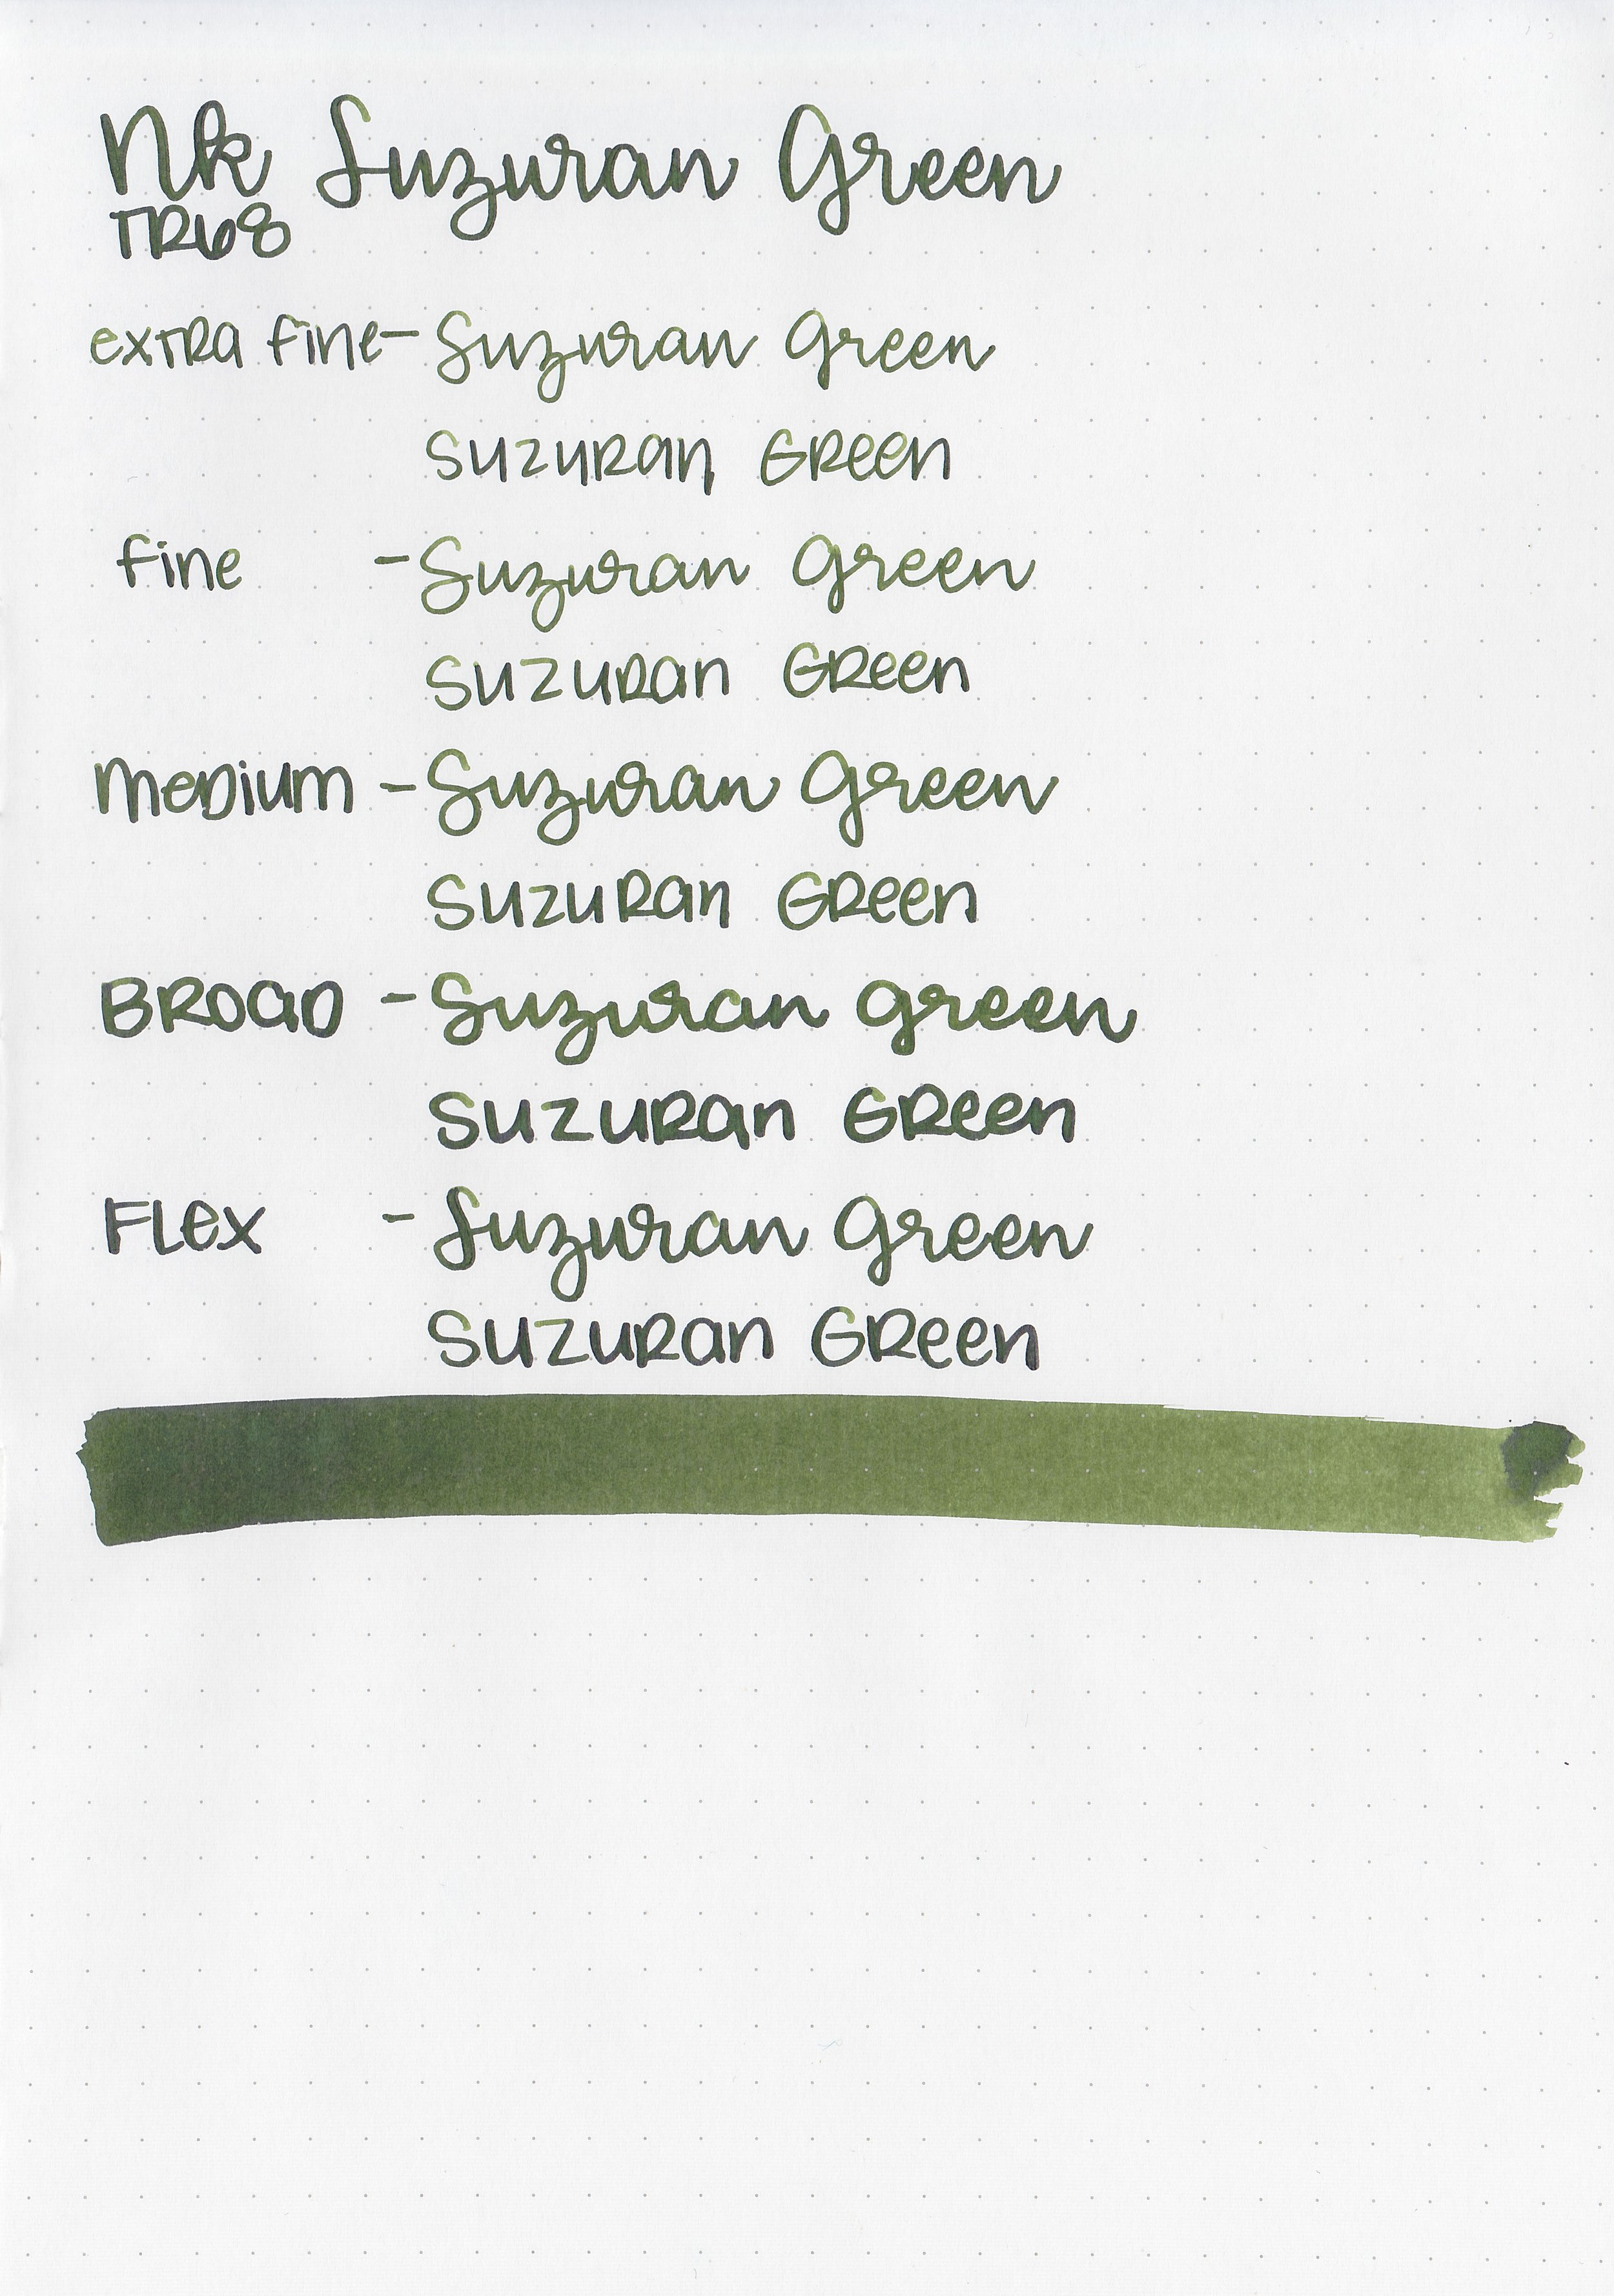 Nk Suzuran Green
TR68
extra fine - Suzuran Green
Suzuran Green
fine - Suzuran Green
Suzuran Green
Medium - Suzuran Green
Suzuran Green
Broad - Suzuran green
Suzuran Green
Flex - Suzuran Green
Suzuran Green